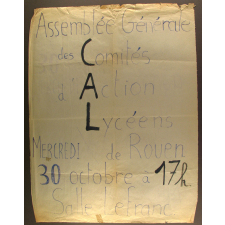 Assemblée Générale
des Comités
d'Action
Lycéens
MERCREDI de Rouen
30 octobre à 17h
Salle Lefranc